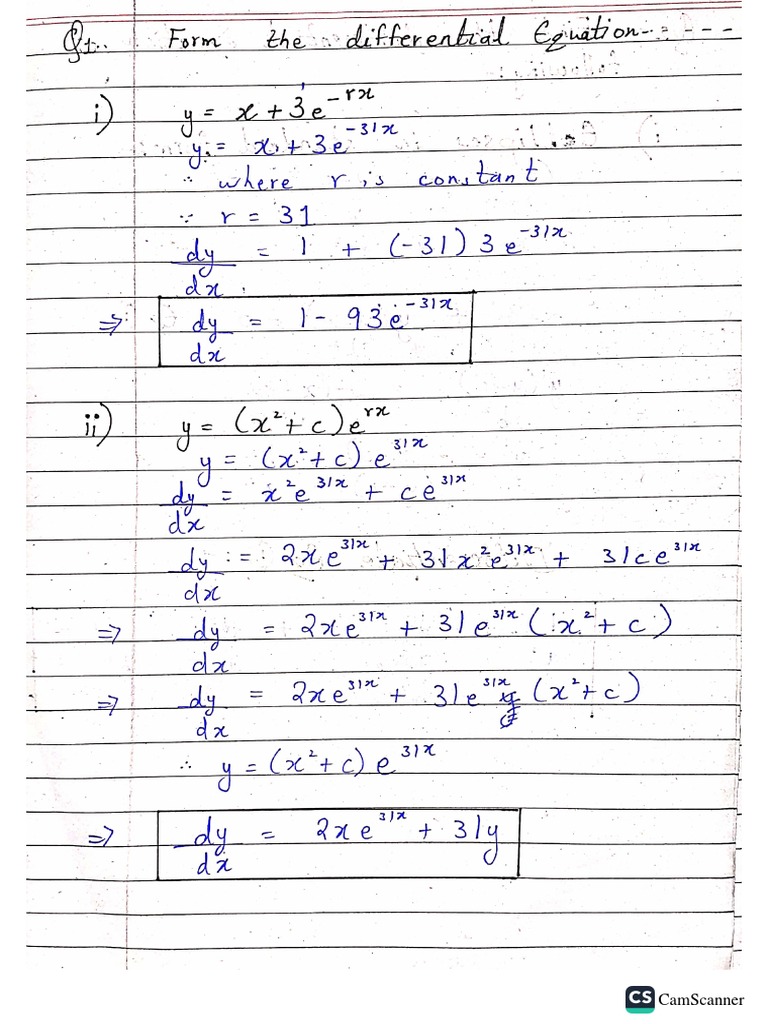 Q1. Form the differential Equation
i) y = x + 3e^{-rx}
y = x + 3e^{-31x}
∴ where r is constant
∵ r = 31
dy/dx = 1 + (-31) 3e^{-31x}
⇒ dy/dx = 1 - 93e^{-31x}
ii) y = (x² + c) e^{rx}
y = (x² + c) e^{31x}
dy/dx = x²e^{31x} + ce^{31x}
dy/dx = 2xe^{31x} + 31x²e^{31x} + 31ce^{31x}
⇒ dy/dx = 2xe^{31x} + 31e^{31x} (x² + c)
⇒ dy/dx = 2xe^{31x} + 31e^{31x} (x² + c)
∴ y = (x² + c) e^{31x}
⇒ dy/dx = 2xe^{31x} + 31y
CS CamScanner